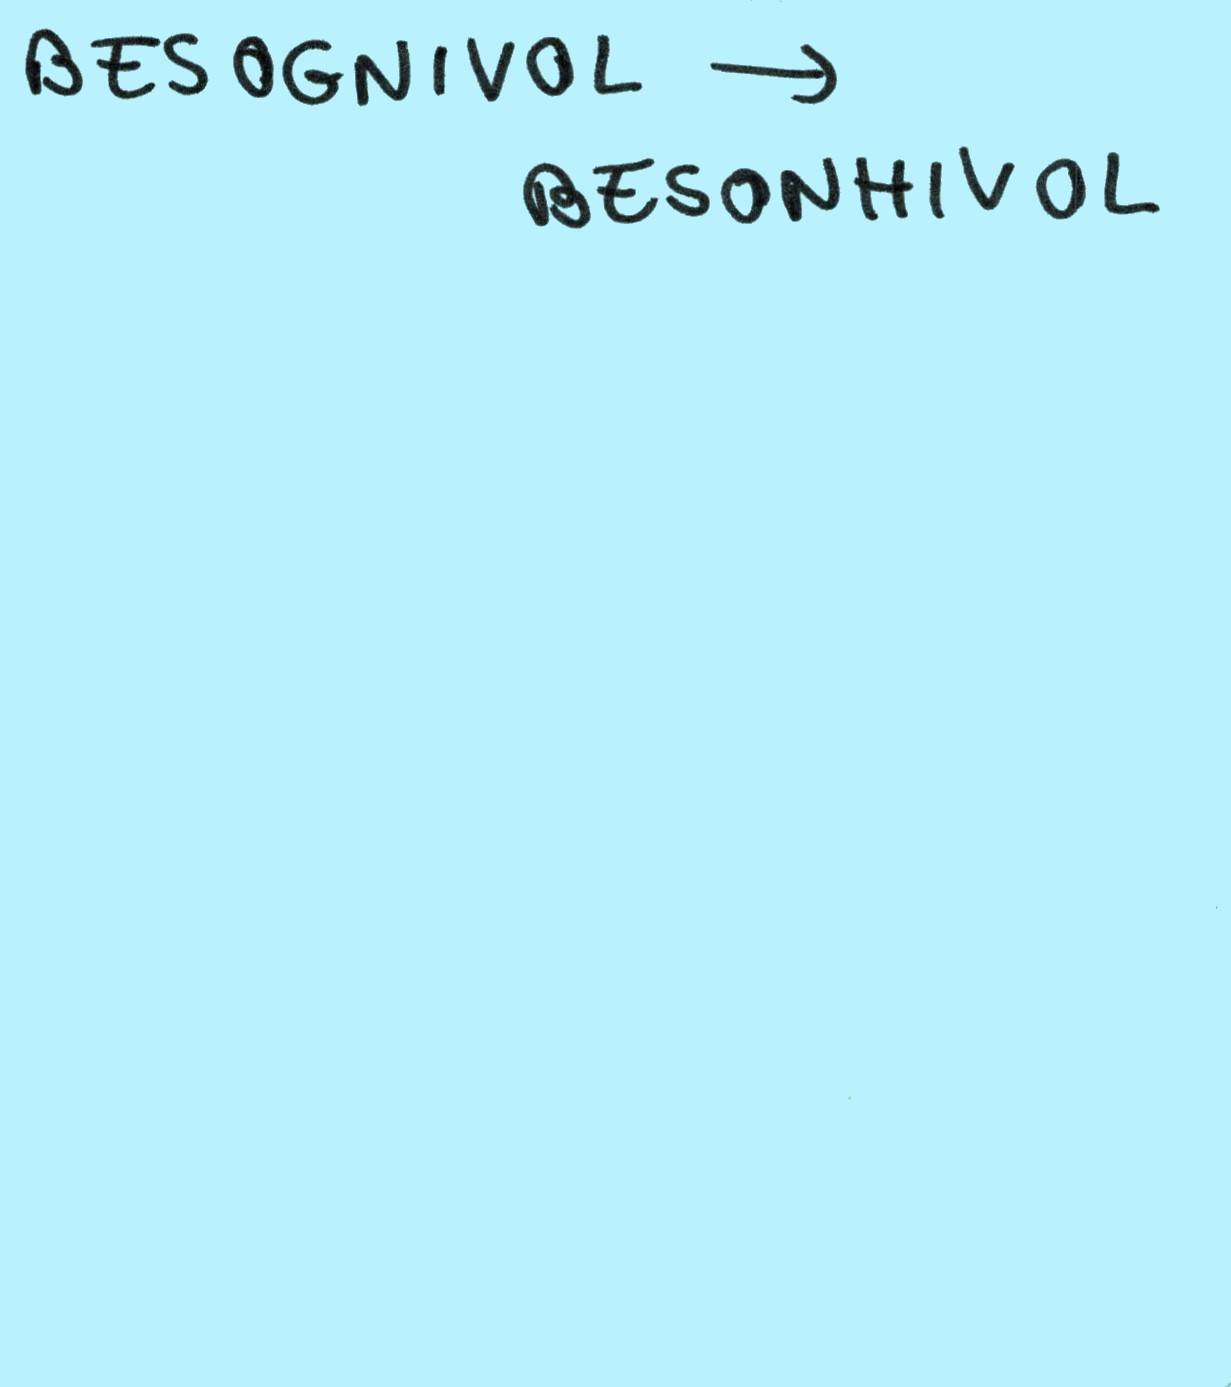 BESOGNIVOL →
BESONHIVOL